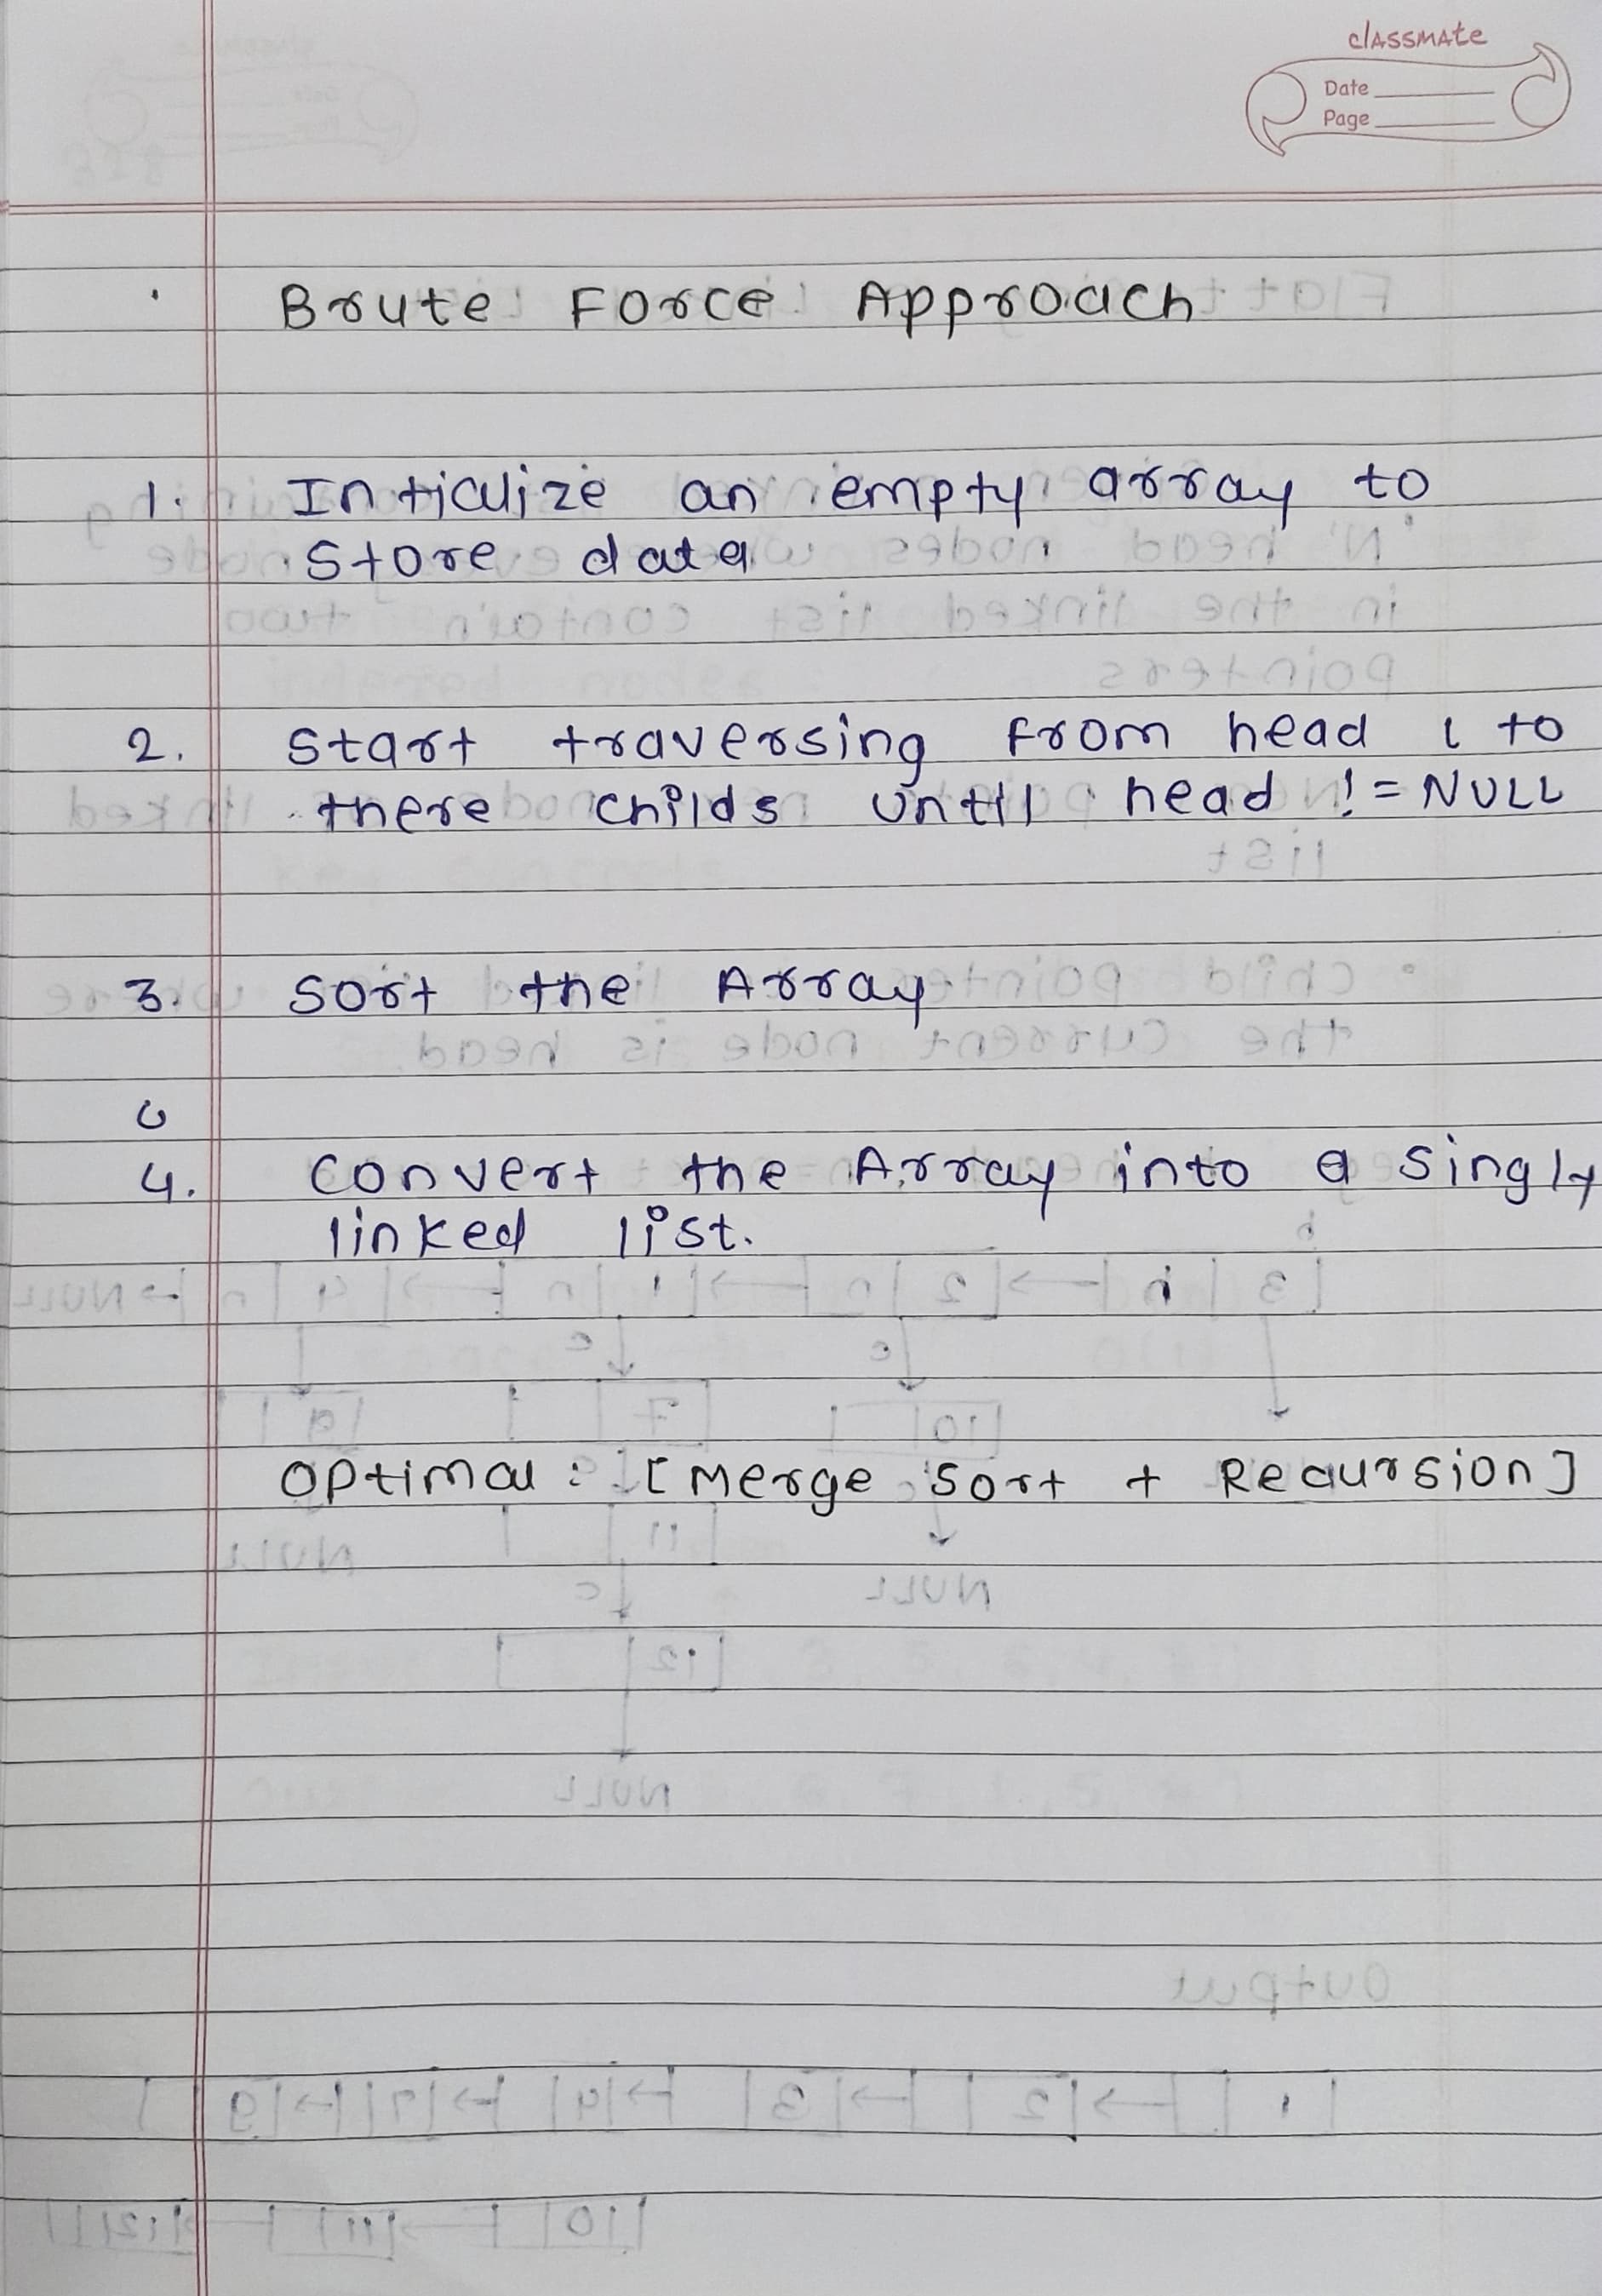 classmate
Date
Page
Brute Force Approach
1. Intialize an empty array to
store data
2. Start traversing from head to
there childs until head != NULL
3. Sort the Array
4. Convert the Array into a singly
linked list.
Optimal : [Merge Sort + Recursion]